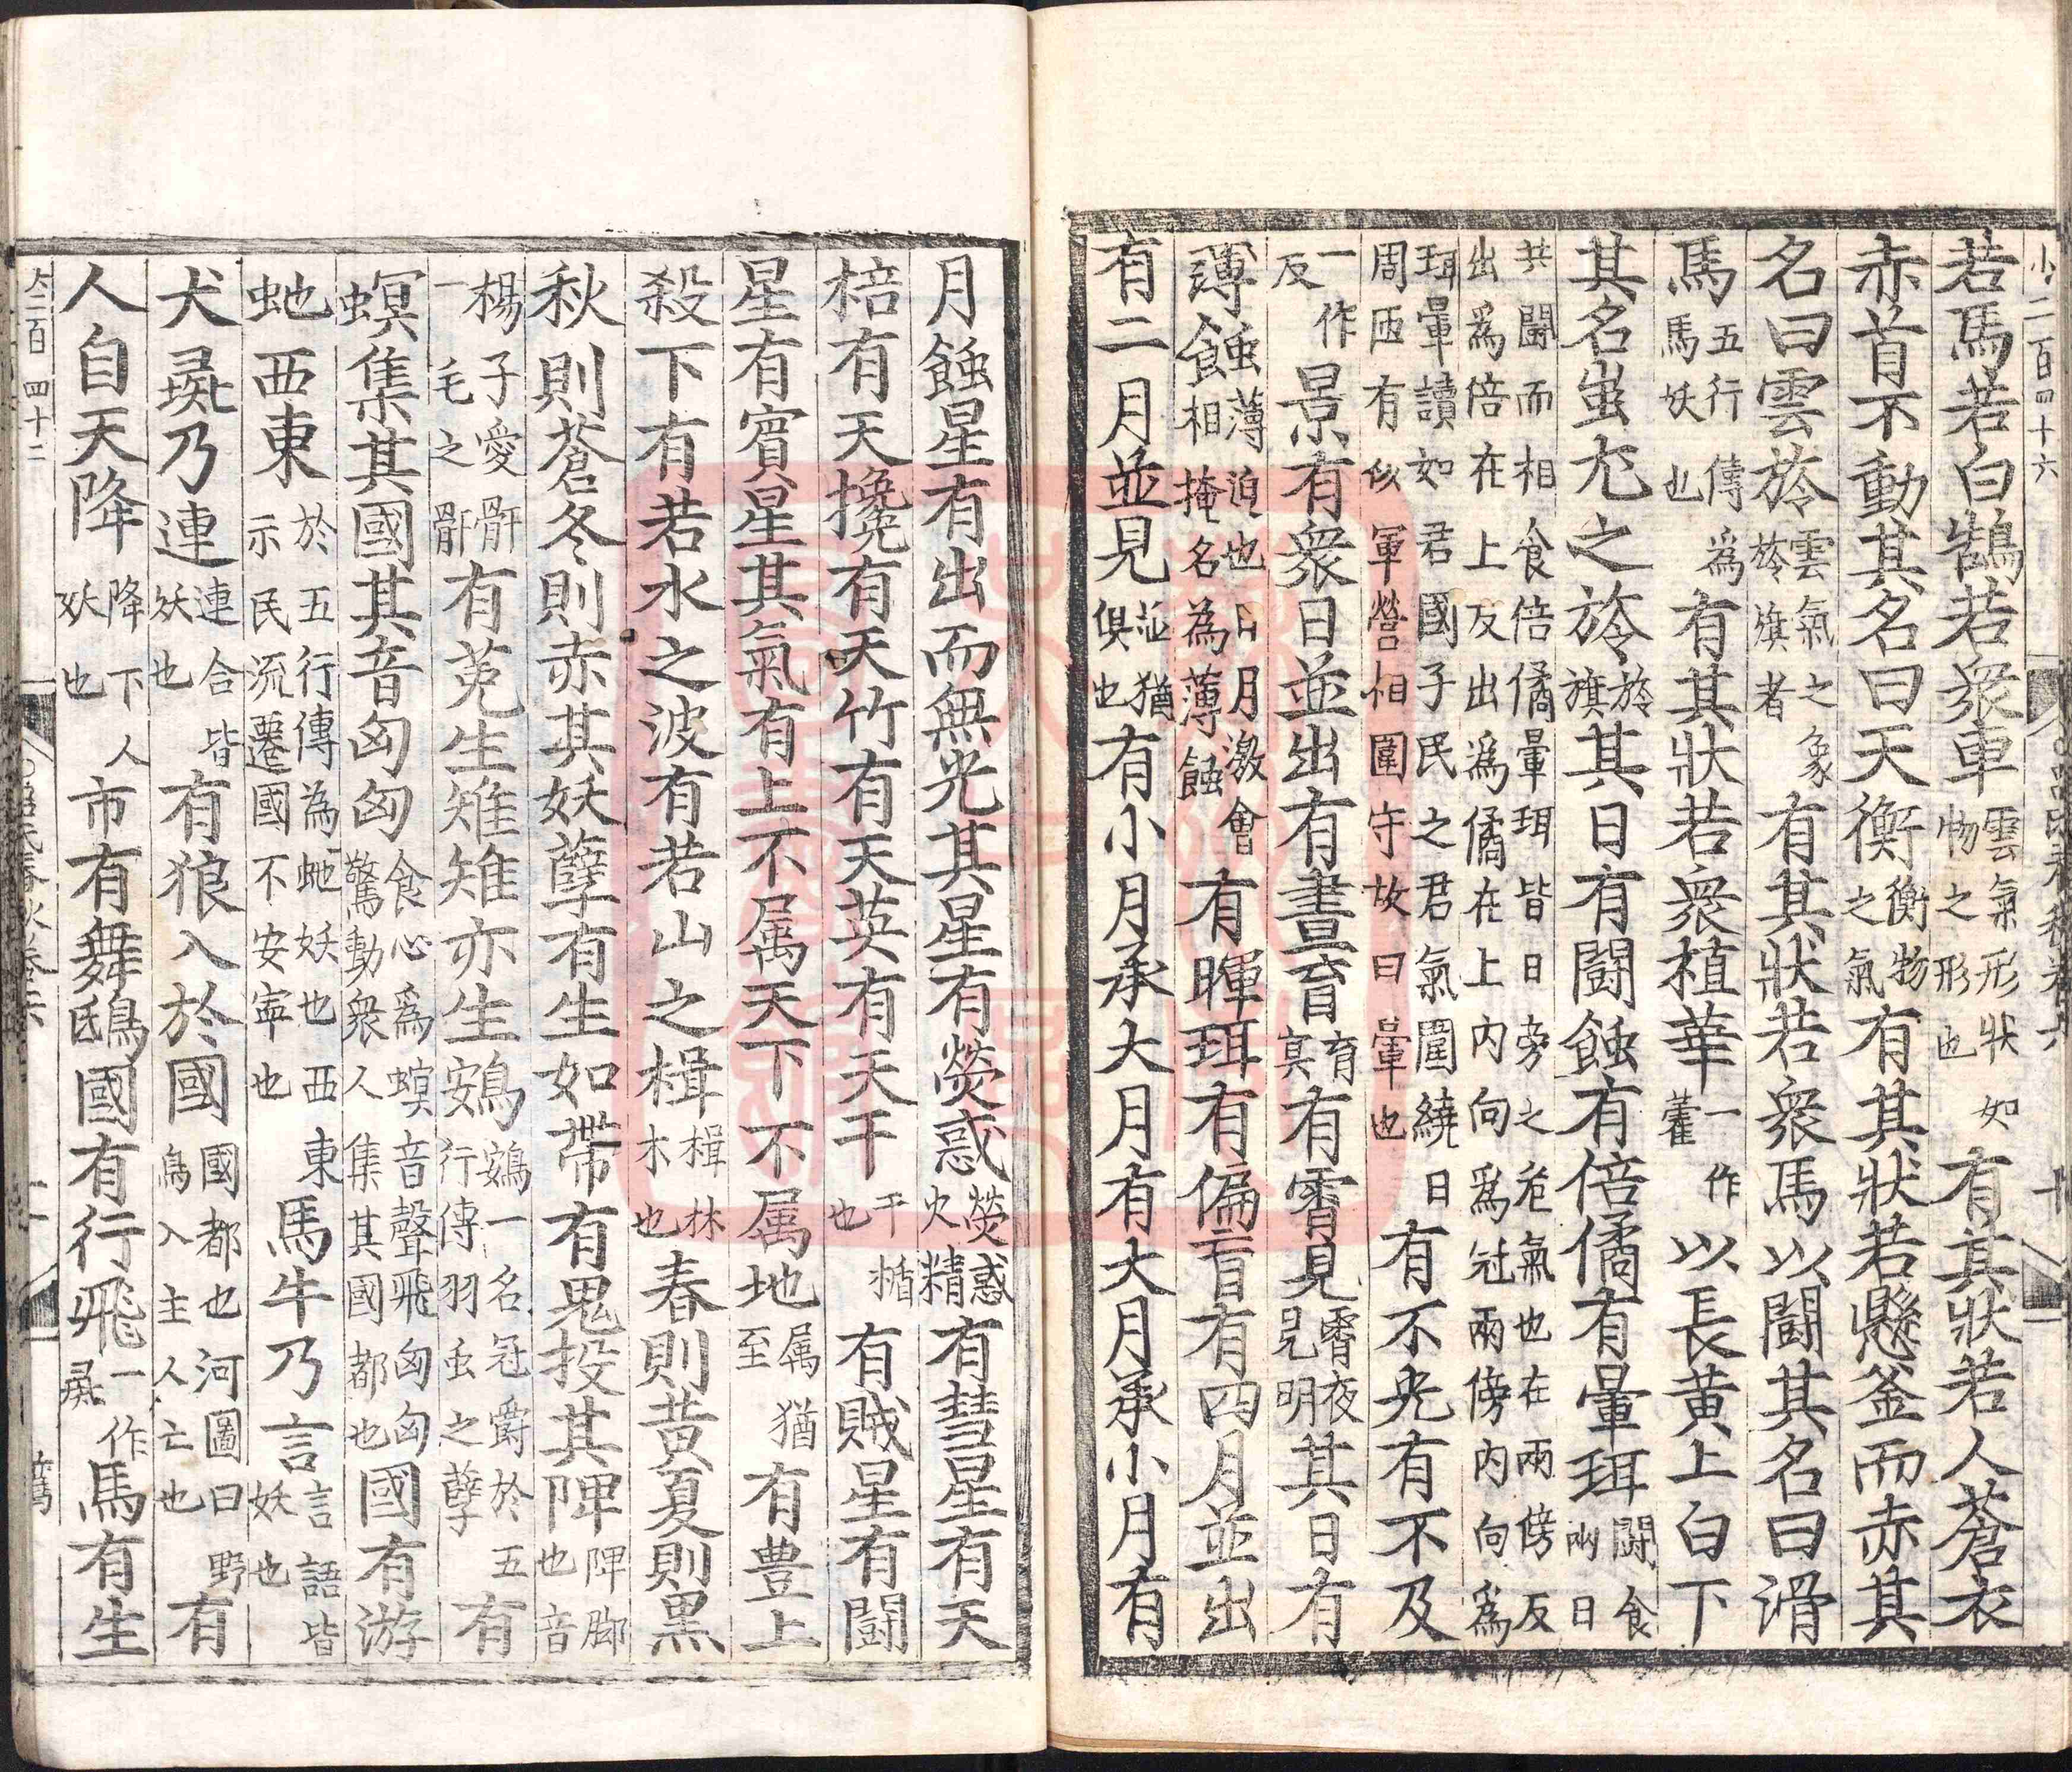 小二百四十六
若馬若白鵠若衆車雲氣形狀如物之形也有其狀若人蒼衣
赤首不動其名曰天衡衡物之氣有其狀若懸釡而赤其
名曰雲旍雲氣之象旍旗者有其狀若衆馬以鬬其名曰滑
馬五行傳爲馬妖也有其狀若衆植華一作雚以長黄上白下
其名蚩尤之旍旍旗其日有鬬蝕有倍僪有暈珥鬬食兩日
共鬬而相食倍僪暈珥皆日旁之危氣也在兩傍反出爲倍在上反出爲僪在上内向爲冠兩傍内向爲
珥暈讀如君國子民之君氣圍繞日周匝有似軍營相圍守故曰暈也有不光有不及
一作反景有衆日並出有晝盲盲冥有霄見霄夜見明其日有
薄蝕薄迫也日月激會相掩名為薄蝕有暉珥有偏盲有四月並出
有二月並見並猶俱也有小月承大月有大月承小月有
月蝕星有出而無光其星有熒惑熒惑火精有彗星有天
棓有天欃有天竹有天英有天干干楯也有賊星有鬬
星有賓星其氣有上不属天下不属地属猶至有豊上
殺下有若水之波有若山之楫楫林木也春則黄夏則黒
秋則蒼冬則赤其妖孽有生如帶有鬼投其陴陴脚也音
楊子愛骭一毛之骭有莵生雉雉亦生鴳鴳一名冠爵於五行傳羽虫之孽有
螟集其國其音匈匈食心爲螟音聲飛匈匈驚動衆人集其國都也國有游
虵西東於五行傳為虵妖也西東示民流遷國不安寕也馬牛乃言言語皆妖也
犬彘乃連連合皆妖也有狼入於國國都也河圖曰野鳥入主人亡也有
人自天降降下人妖也市有舞鴟國有行飛一作彘馬有生
大二百四十二
吕氏春秋卷六
十一